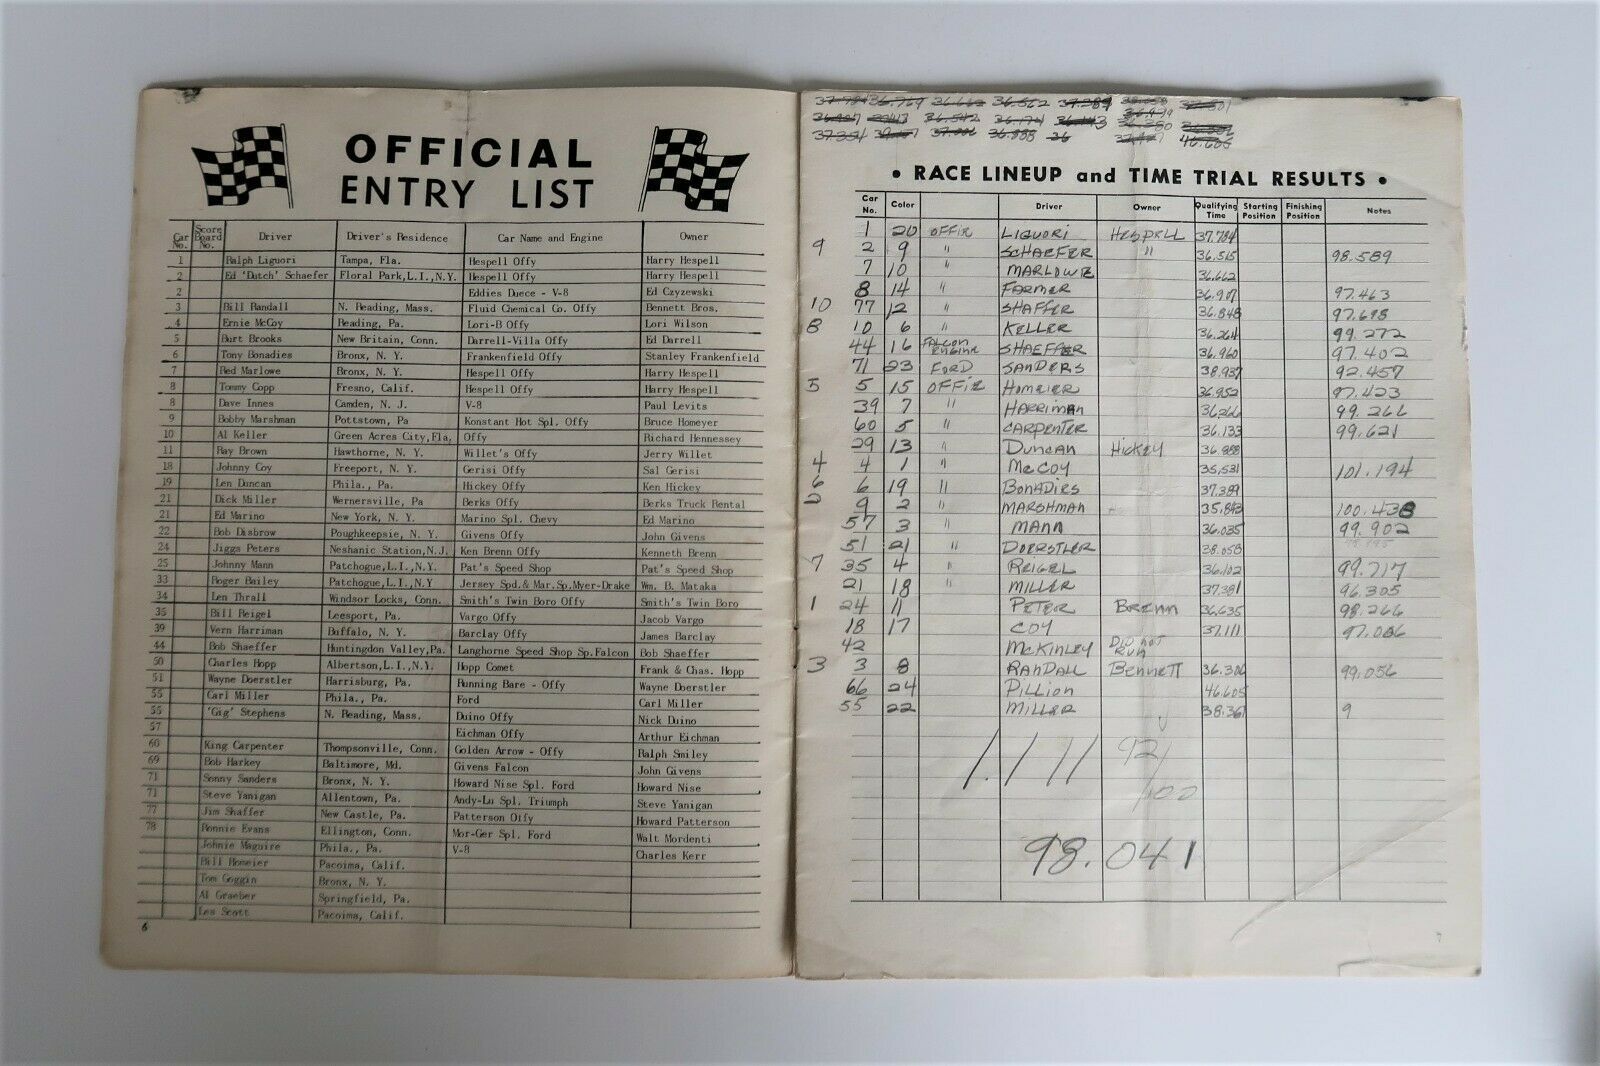 OFFICIAL
ENTRY LIST
Car No. Score Board No. Driver Driver's Residence Car Name and Engine Owner
1 Ralph Liguori Tampa, Fla. Hespell Offy Harry Hespell
2 Ed 'Dutch' Schaefer Floral Park,L.I.,N.Y. Hespell Offy Harry Hespell
2 Eddies Duece - V-8 Ed Czyzewski
3 Bill Randall N. Reading, Mass. Fluid Chemical Co. Offy Bennett Bros.
4 Ernie McCoy Reading, Pa. Lori-B Offy Lori Wilson
5 Burt Brooks New Britain, Conn. Darrell-Villa Offy Ed Darrell
6 Tony Bonadies Bronx, N. Y. Frankenfield Offy Stanley Frankenfield
7 Red Marlowe Bronx, N. Y. Hespell Offy Harry Hespell
8 Tommy Copp Fresno, Calif. Hespell Offy Harry Hespell
8 Dave Innes Camden, N. J. V-8 Paul Levits
9 Bobby Marshman Pottstown, Pa Konstant Hot Spl. Offy Bruce Homeyer
10 Al Keller Green Acres City,Fla, Offy Richard Hennessey
11 Ray Brown Hawthorne, N. Y. Willet's Offy Jerry Willet
18 Johnny Coy Freeport, N. Y. Gerisi Offy Sal Gerisi
19 Len Duncan Phila., Pa. Hickey Offy Ken Hickey
21 Dick Miller Wernersville, Pa Berks Offy Berks Truck Rental
21 Ed Marino New York, N. Y. Marino Spl. Chevy Ed Marino
22 Bob Disbrow Poughkeepsie, N. Y. Givens Offy John Givens
24 Jiggs Peters Neshanic Station,N.J. Ken Brenn Offy Kenneth Brenn
25 Johnny Mann Patchogue,L.I.,N.Y. Pat's Speed Shop Pat's Speed Shop
33 Roger Bailey Patchogue,L.I.,N.Y Jersey Spd.& Mar.Sp.Myer-Drake Wm. B. Mataka
34 Len Thrall Windsor Locks, Conn. Smith's Twin Boro Offy Smith's Twin Boro
35 Bill Reigel Leesport, Pa. Vargo Offy Jacob Vargo
39 Vern Harriman Buffalo, N. Y. Barclay Offy James Barclay
44 Bob Shaeffer Huntingdon Valley,Pa. Langhorne Speed Shop Sp.Falcon Bob Shaeffer
50 Charles Hopp Albertson,L.I.,N.Y. Hopp Comet Frank & Chas. Hopp
51 Wayne Doerstler Harrisburg, Pa. Running Bare - Offy Wayne Doerstler
55 Carl Miller Phila., Pa. Ford Carl Miller
55 'Gig' Stephens N. Reading, Mass. Duino Offy Nick Duino
57 Eichman Offy Arthur Eichman
60 King Carpenter Thompsonville, Conn. Golden Arrow - Offy Ralph Smiley
69 Bob Harkey Baltimore, Md. Givens Falcon John Givens
71 Sonny Sanders Bronx, N. Y. Howard Nise Spl. Ford Howard Nise
71 Steve Yanigan Allentown, Pa. Andy-Lu Spl. Triumph Steve Yanigan
77 Jim Shaffer New Castle, Pa. Patterson Offy Howard Patterson
78 Ronnie Evans Ellington, Conn. Mor-Ger Spl. Ford Walt Mordenti
Johnie Maguire Phila., Pa. V-8 Charles Kerr
Bill Homeier Pacoima, Calif.
Tom Goggin Bronx, N. Y.
Al Graeber Springfield, Pa.
Les Scott Pacoima, Calif.
6
37.784 36.769 36.662 36.562 37.389
36.907 36.542 36.174
37.354 37.006 36.888 36 46.605
• RACE LINEUP and TIME TRIAL RESULTS •
Car No. Color Driver Owner Qualifying Time Starting Position Finishing Position Notes
1 20 OFFIE LIGUORI HESPELL 37.784
9 2 9 " SCHAEFER " 36.515 98.589
7 10 " MARLOWE 36.662
8 14 " FARMER 36.907 97.463
10 77 12 " SHAFFER 36.848 97.698
8 10 6 " KELLER 36.264 99.272
44 16 FALCON ENGINE SHAEFFER 36.960 97.402
71 23 FORD SANDERS 38.937 92.457
5 5 15 OFFIE HOMEIER 36.952 97.423
39 7 " HARRIMAN 36.266 99.266
60 5 " CARPENTER 36.133 99.621
29 13 " DUNCAN HICKEY 36.888
4 4 1 " McCOY 35.531 101.194
6 6 19 " BONADIES 37.389
2 9 2 " MARSHMAN 35.843 100.438
57 3 " MANN 36.035 99.902
51 21 " DOERSTLER 38.058
7 35 4 " REIGEL 36.102 99.717
21 18 " MILLER 37.381 96.305
1 24 11 PETER BRENN 36.635 98.266
18 17 COY 37.111 97.006
42 McKINLEY DID NOT RUN
3 3 8 RANDALL BENNETT 36.306 99.056
66 24 PILLION 46.605
55 22 MILLER 38.361 9
1.1 11 92
100
98.041
7